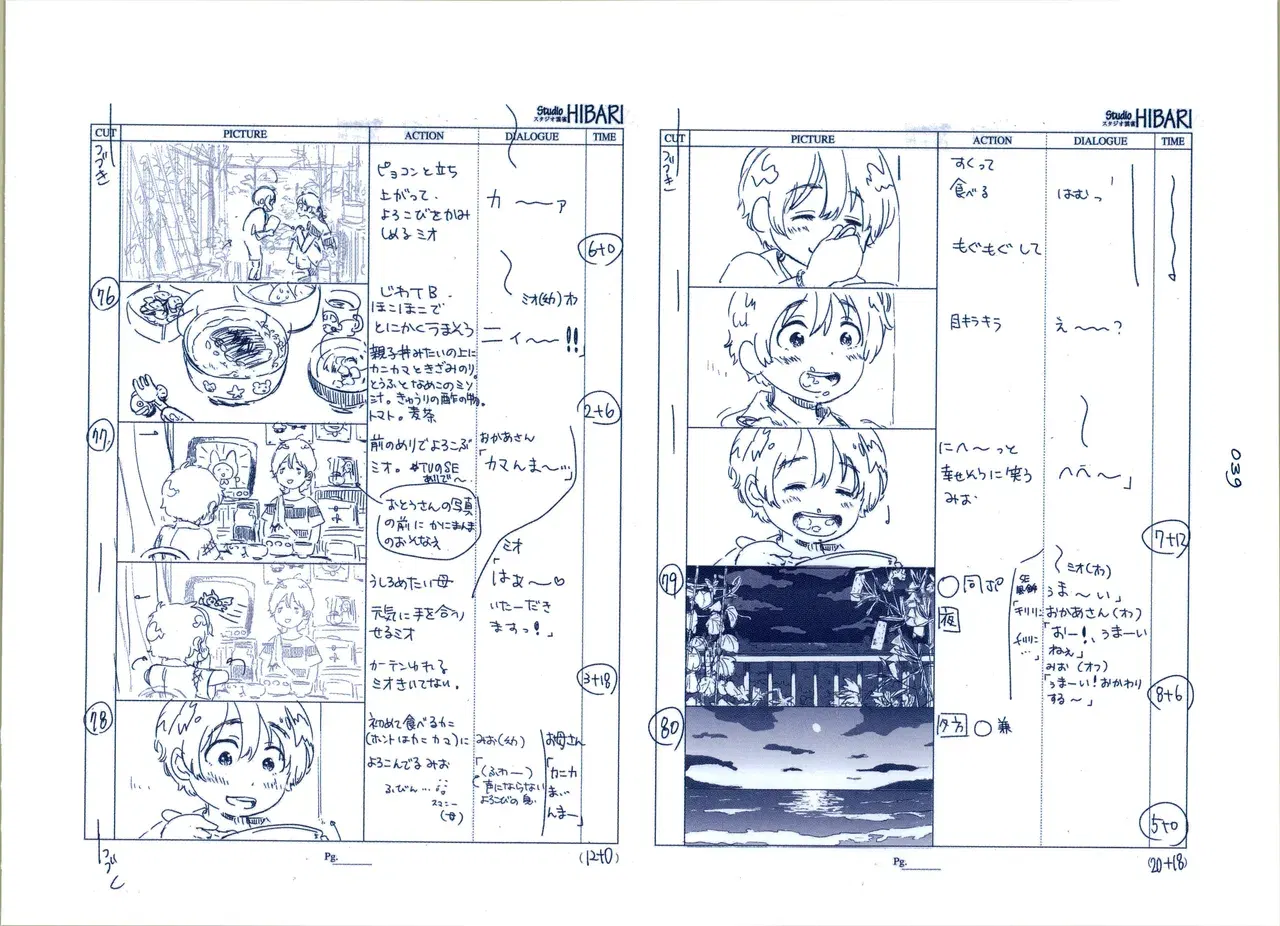 Studio HIBARI
スタジオ雲雀
CUT PICTURE ACTION DIALOGUE TIME
つづき
ピョコンと立ち
上がって、
よろこびをかみ
しめるミオ
カ〜〜ァ
6+0
76
じわTB.
ほこほこで
とにかくうまそう
親子丼みたいの上に
カニカマときざみのり。
とうふとなめこのミソ
汁。きゅうりの酢の物。
トマト。麦茶
ミオ(幼)オフ
ニィ〜〜!!」
2+6
77
前のめりでよろこぶ
ミオ。 *TVのSE
ありで〜
おとうさんの写真
の前に かにまんま
のおそなえ
おかあさん
「カマんま〜…」
うしろめたい母
元気に手を合わ
せるミオ
カーテンゆれる
ミオきいてない。
ミオ
「はぁ〜〜♡
いたーだき
ますっ!」
3+18
78
初めて食べるカニ
(ホントはカニカマ)に
よろこんでるみお
ふびん…
スマニー
(母)
みお(幼)
「(ふわー)
声にならない
よろこびの息
お母さん
「カニカ
ま…
んまー」
つづく
Pg.
(12+0)
Studio HIBARI
スタジオ雲雀
CUT PICTURE ACTION DIALOGUE TIME
つづき
すくって
食べる
もぐもぐして
はむっ
目キラキラ
え〜〜?
にへ〜っと
幸せそうに笑う
みお
へへ〜」
7+12
79
同ポ
夜
SE
風鈴
「チリリン
チリリン
…」
ミオ(オフ)
うま〜い」
おかあさん(オフ)
「おー!、うまーい
ねぇ」
みお(オフ)
「うまーい!おかわり
する〜」
8+6
80
夕方 兼
5+0
Pg.
(20+18)
039